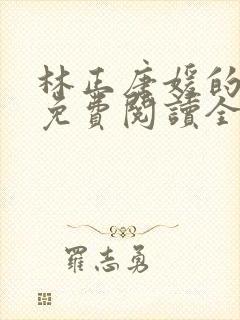 林正唐媛的
免費閱讀全
羅志勇